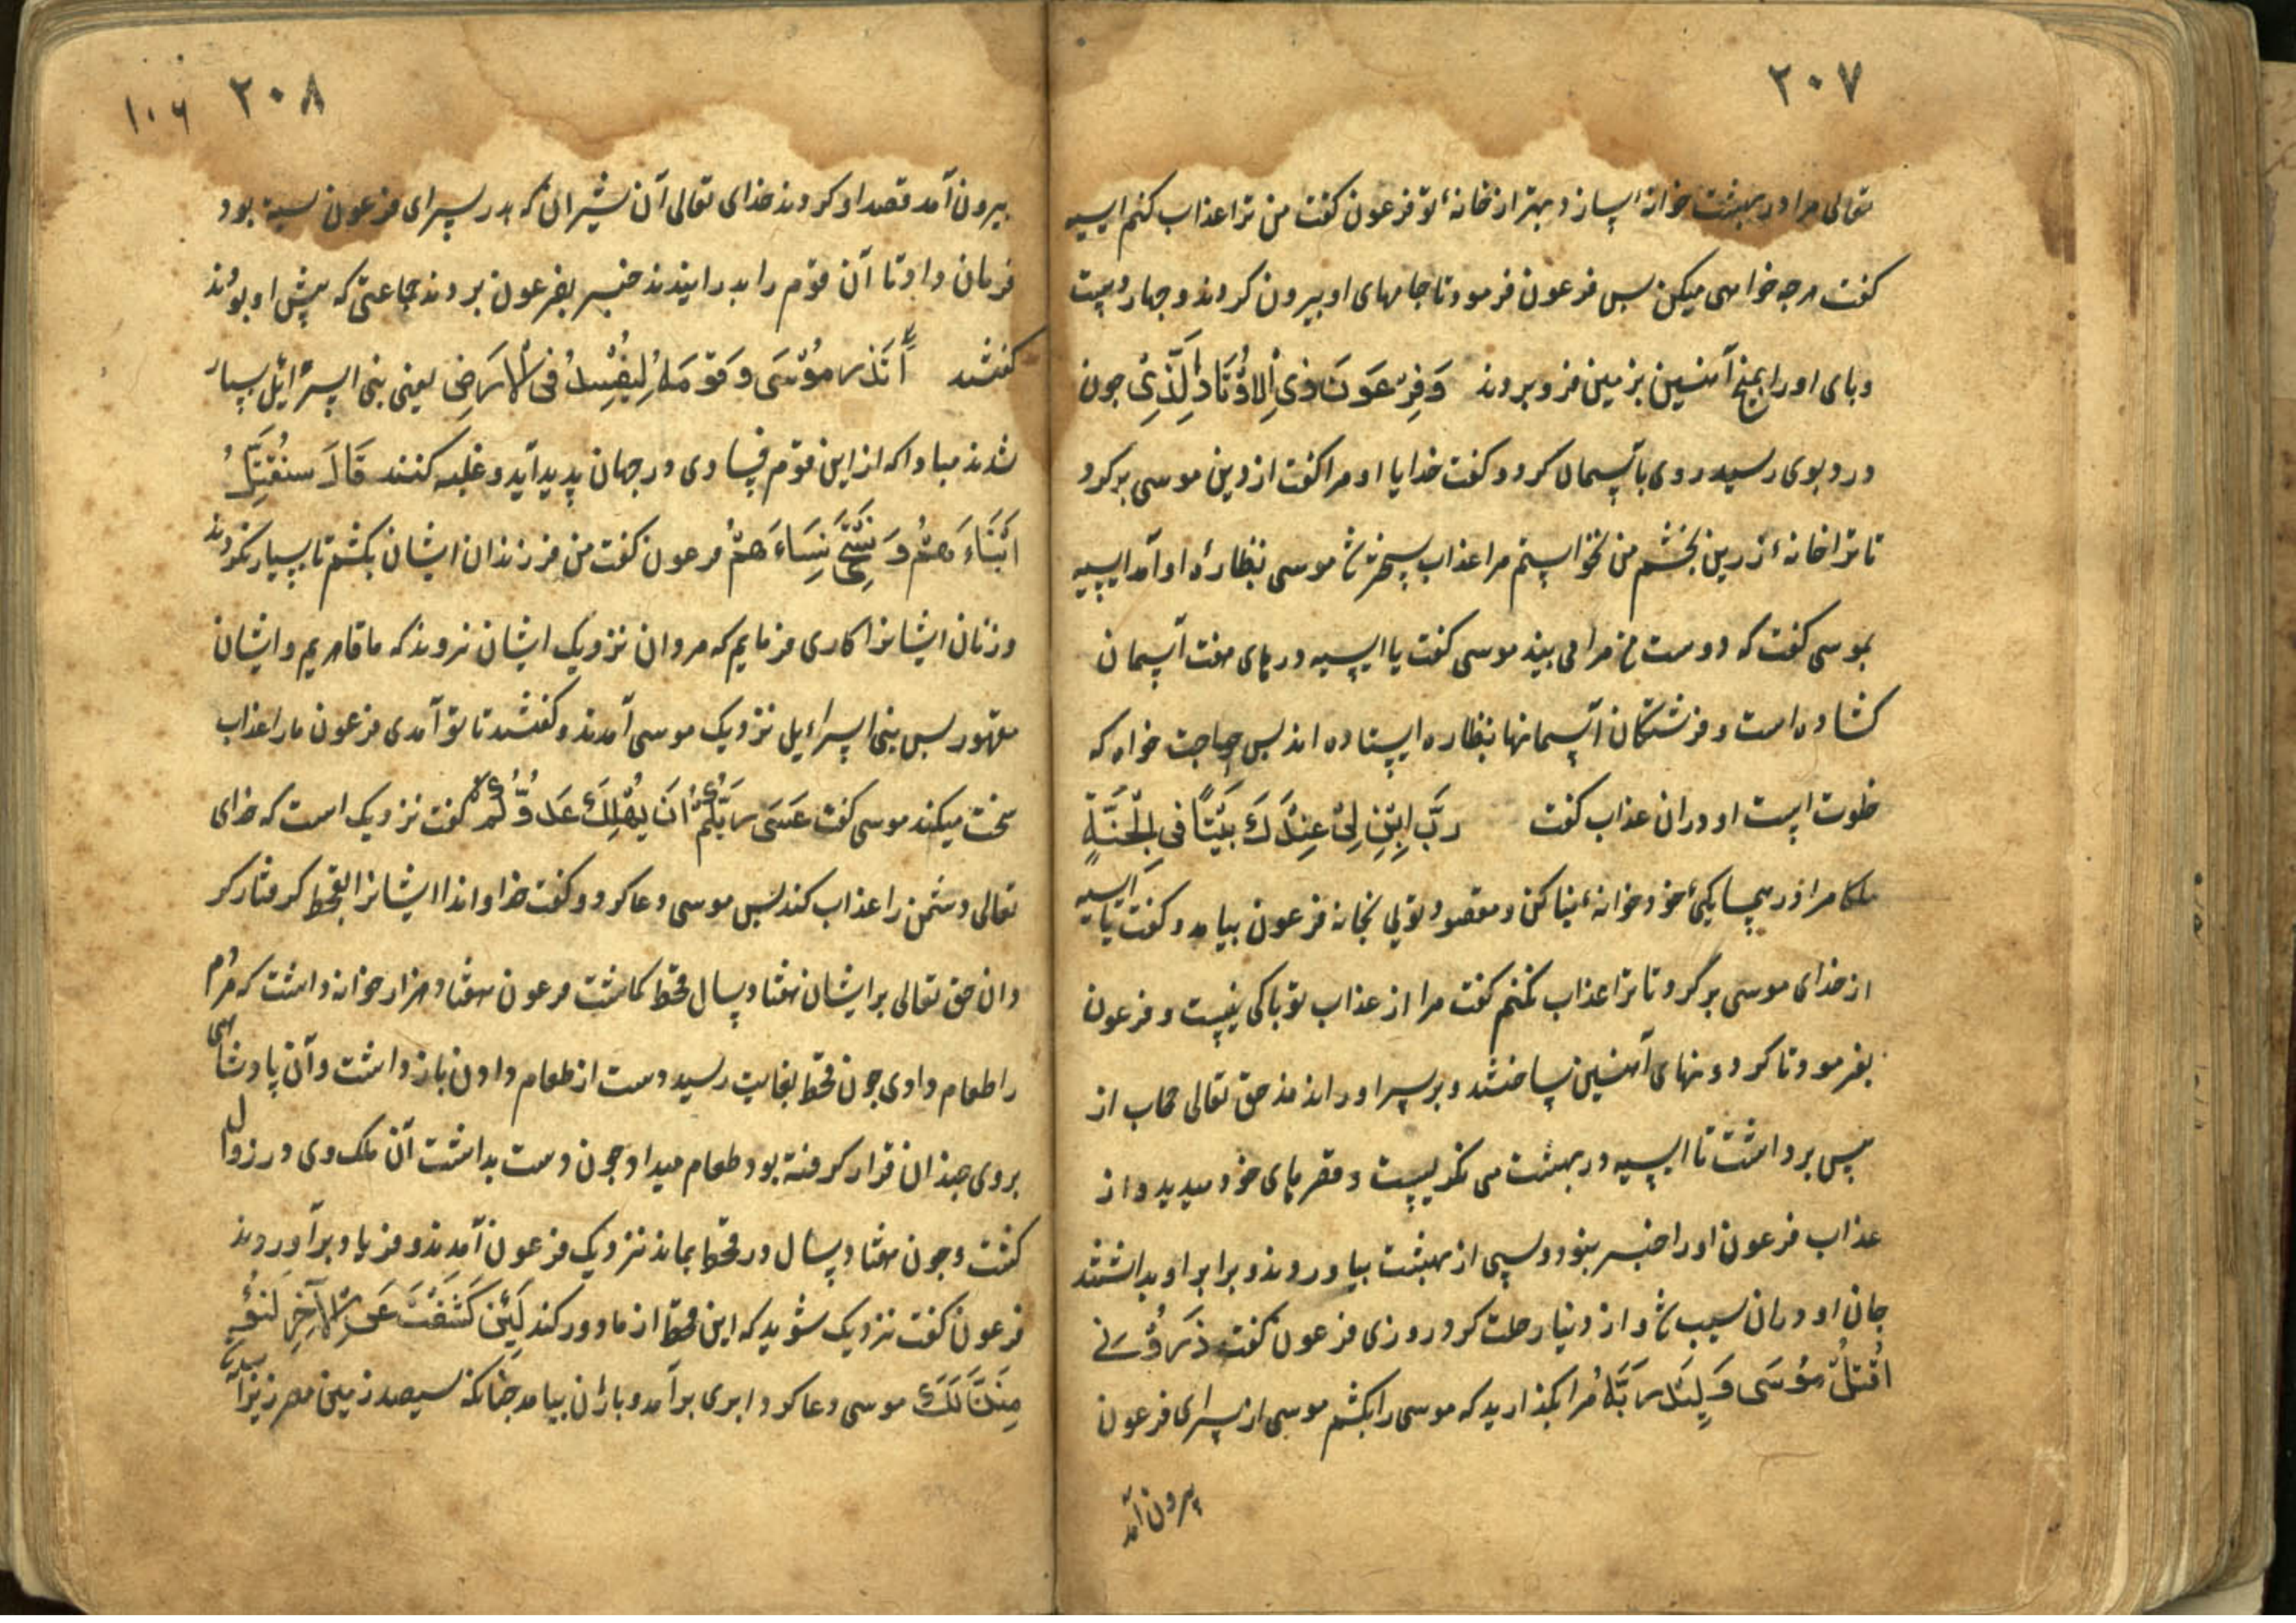 ۲۰۷
تعالی مرا در بهشت خوانه اسپازد بهتر از خانهٔ تو فرعون کفت من ترا عذاب کنم ایسیه
کفت هرجه خواهی میکن بس فرعون فرمود تا جامهای او بیرون کردند و جهار دست
و پای او را بمیخ آهنین بزمین فرو بردند وَفِرْعَوْنَ ذِی الْاَوْتَادِ الَّذِیْ جون
درد بوی رسید روی بآسمان کرد و کفت خدایا او مرا کفت از دین موسی برکرد
تا ترا خانهٔ زرین بخشم من نخواستم مرا عذاب سخت موسی بنظارهٔ او آمد ایسیه
بموسی کفت که دوست مرا می بیند موسی کفت یا ایسیه درهای هفت آسمان
کشاده است و فرشتکان آسمانها بنظاره ایستاده اند بس حاجت خواه که
خلوت است او دران عذاب کفت رَبِّ ابْنِ لِیْ عِنْدَكَ بَیْتًا فِی الْجَنَّةِ
ملکا مرا در همسایکیٔ خود خوانهٔ بنا کن و مقصود توئی بخانه فرعون بیامد و کفت یا آسیه
از خدای موسی برگرد تا ترا عذاب نکنم کفت مرا از عذاب تو باکی نیست و فرعون
بفرمود تا کردونهای آهنین ساختند و بر سر او راندند حق تعالی حجاب از
پیش برداشت تا ایسیه در بهشت می نکریست و قصرهای خود میدید و از
عذاب فرعون او را خبر نبود و سیبی از بهشت بیاوردند و برابر او بداشتند
جان او دران سیب شد و از دنیا رحلت کرد روزی فرعون کفت ذَرُوْنِیْ
اَقْتُلْ مُوْسَی وَلْیَدْعُ رَبَّهُ مرا بکذارید که موسی را بکشم موسی از سرای فرعون
بیرون آمد
۲۰۸ ۱۰۶
بیرون آمد قصد او کردند خدای تعالی آن شیران که بدر سرای فرعون بسته بود
فرمان داد تا آن قوم را بدرانیدند خبر بفرعون بردند جماعتی که پیش او بودند
کفتند اَتَذَرُ مُوْسَی وَقَوْمَهُ لِیُفْسِدُ فِی الْاَرْضِ یعنی بنی اسرائیل بسیار
شدند مبادا که از این قوم فسادی در جهان پدید آید و غلبه کنند قَالَ سَنُقَتِّلُ
اَبْنَاءَهُمْ وَ نَسْتَحْیِ نِسَاءَهُمْ فرعون کفت من فرزندان ایشان بکشم تا بسیار نکردند
و زنان ایشانرا کاری فرمایم که مردان نزدیک ایشان نروند که ما قاهریم و ایشان
مقهور بس بنی اسرائیل نزدیک موسی آمدند و کفتند تا تو آمدی فرعون ما را عذاب
سخت میکند موسی کفت عَسَی رَبُّكُمْ اَنْ یُهْلِكَ عَدُوَّكُمْ کفت نزدیک است که خدای
تعالی دشمن را عذاب کند بس موسی دعا کرد و کفت خداوندا ایشانرا بقحط کرفتار کر
دان حق تعالی بر ایشان هفتاد سال قحط کماشت فرعون هفتاد هزار خوانه داشت که مردم
را طعام دادی جون قحط بغایت رسید دست از طعام دادن باز داشت و آن پادشاهی
بروی جندان قرار کرفته بود طعام میداد جون دست بداشت آن ملک وی در زوال
کشت و جون هفتاد سال در قحط بماندند نزدیک فرعون آمدند و فریاد برآوردند
فرعون کفت نزدیک شوید که این قحط از ما دور کند لَئِنْ كَشَفْتَ عَنَّا الرِّجْزَ لَنُؤْ
مِنَنَّ لَكَ موسی دعا کرد ابری برآمد و باران بیامد جنانکه سیصد زمین مصر زیر آب